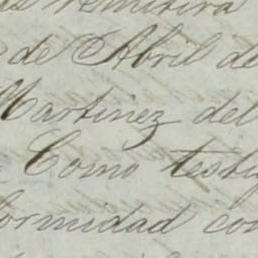 remitira
de Abril de
Martinez del
Como testi
formidad con